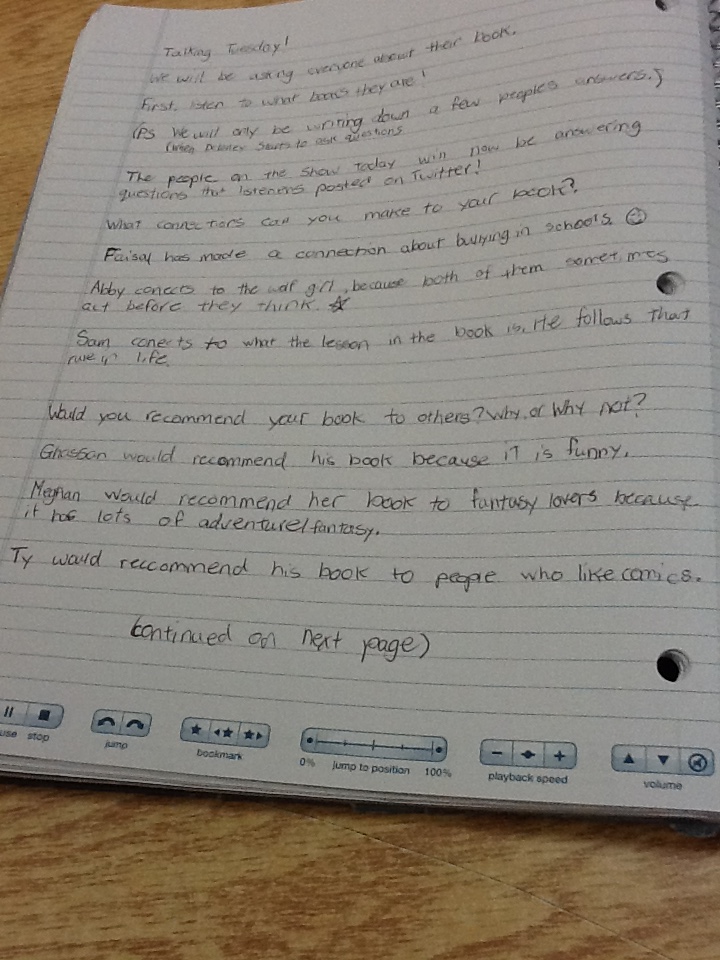 Talking Tuesday!
We will be asking everyone about their book.
First, listen to what books they are!
(Ps We will only be writing down a few people's answers.)
(when starts to ask questions
The people on the show today will now be answering
questions that listeners posted on Twitter!
What connections can you make to your book?
Faisal has made a connection about bullying in schools. ☺
Abby conects to the girl, because both of them sometimes
act before they think. ☆
Sam conects to what the lesson in the book is. He follows that
rule in life.
Would you recommend your book to others? Why or Why not?
Ghassan would recommend his book because it is funny.
Meghan would recommend her book to fantasy lovers because
it has lots of adventure/fantasy.
Ty would reccommend his book to people who like comics.
(continued on next page)
use stop
jump
bookmark
0% jump to position 100%
playback speed
volume